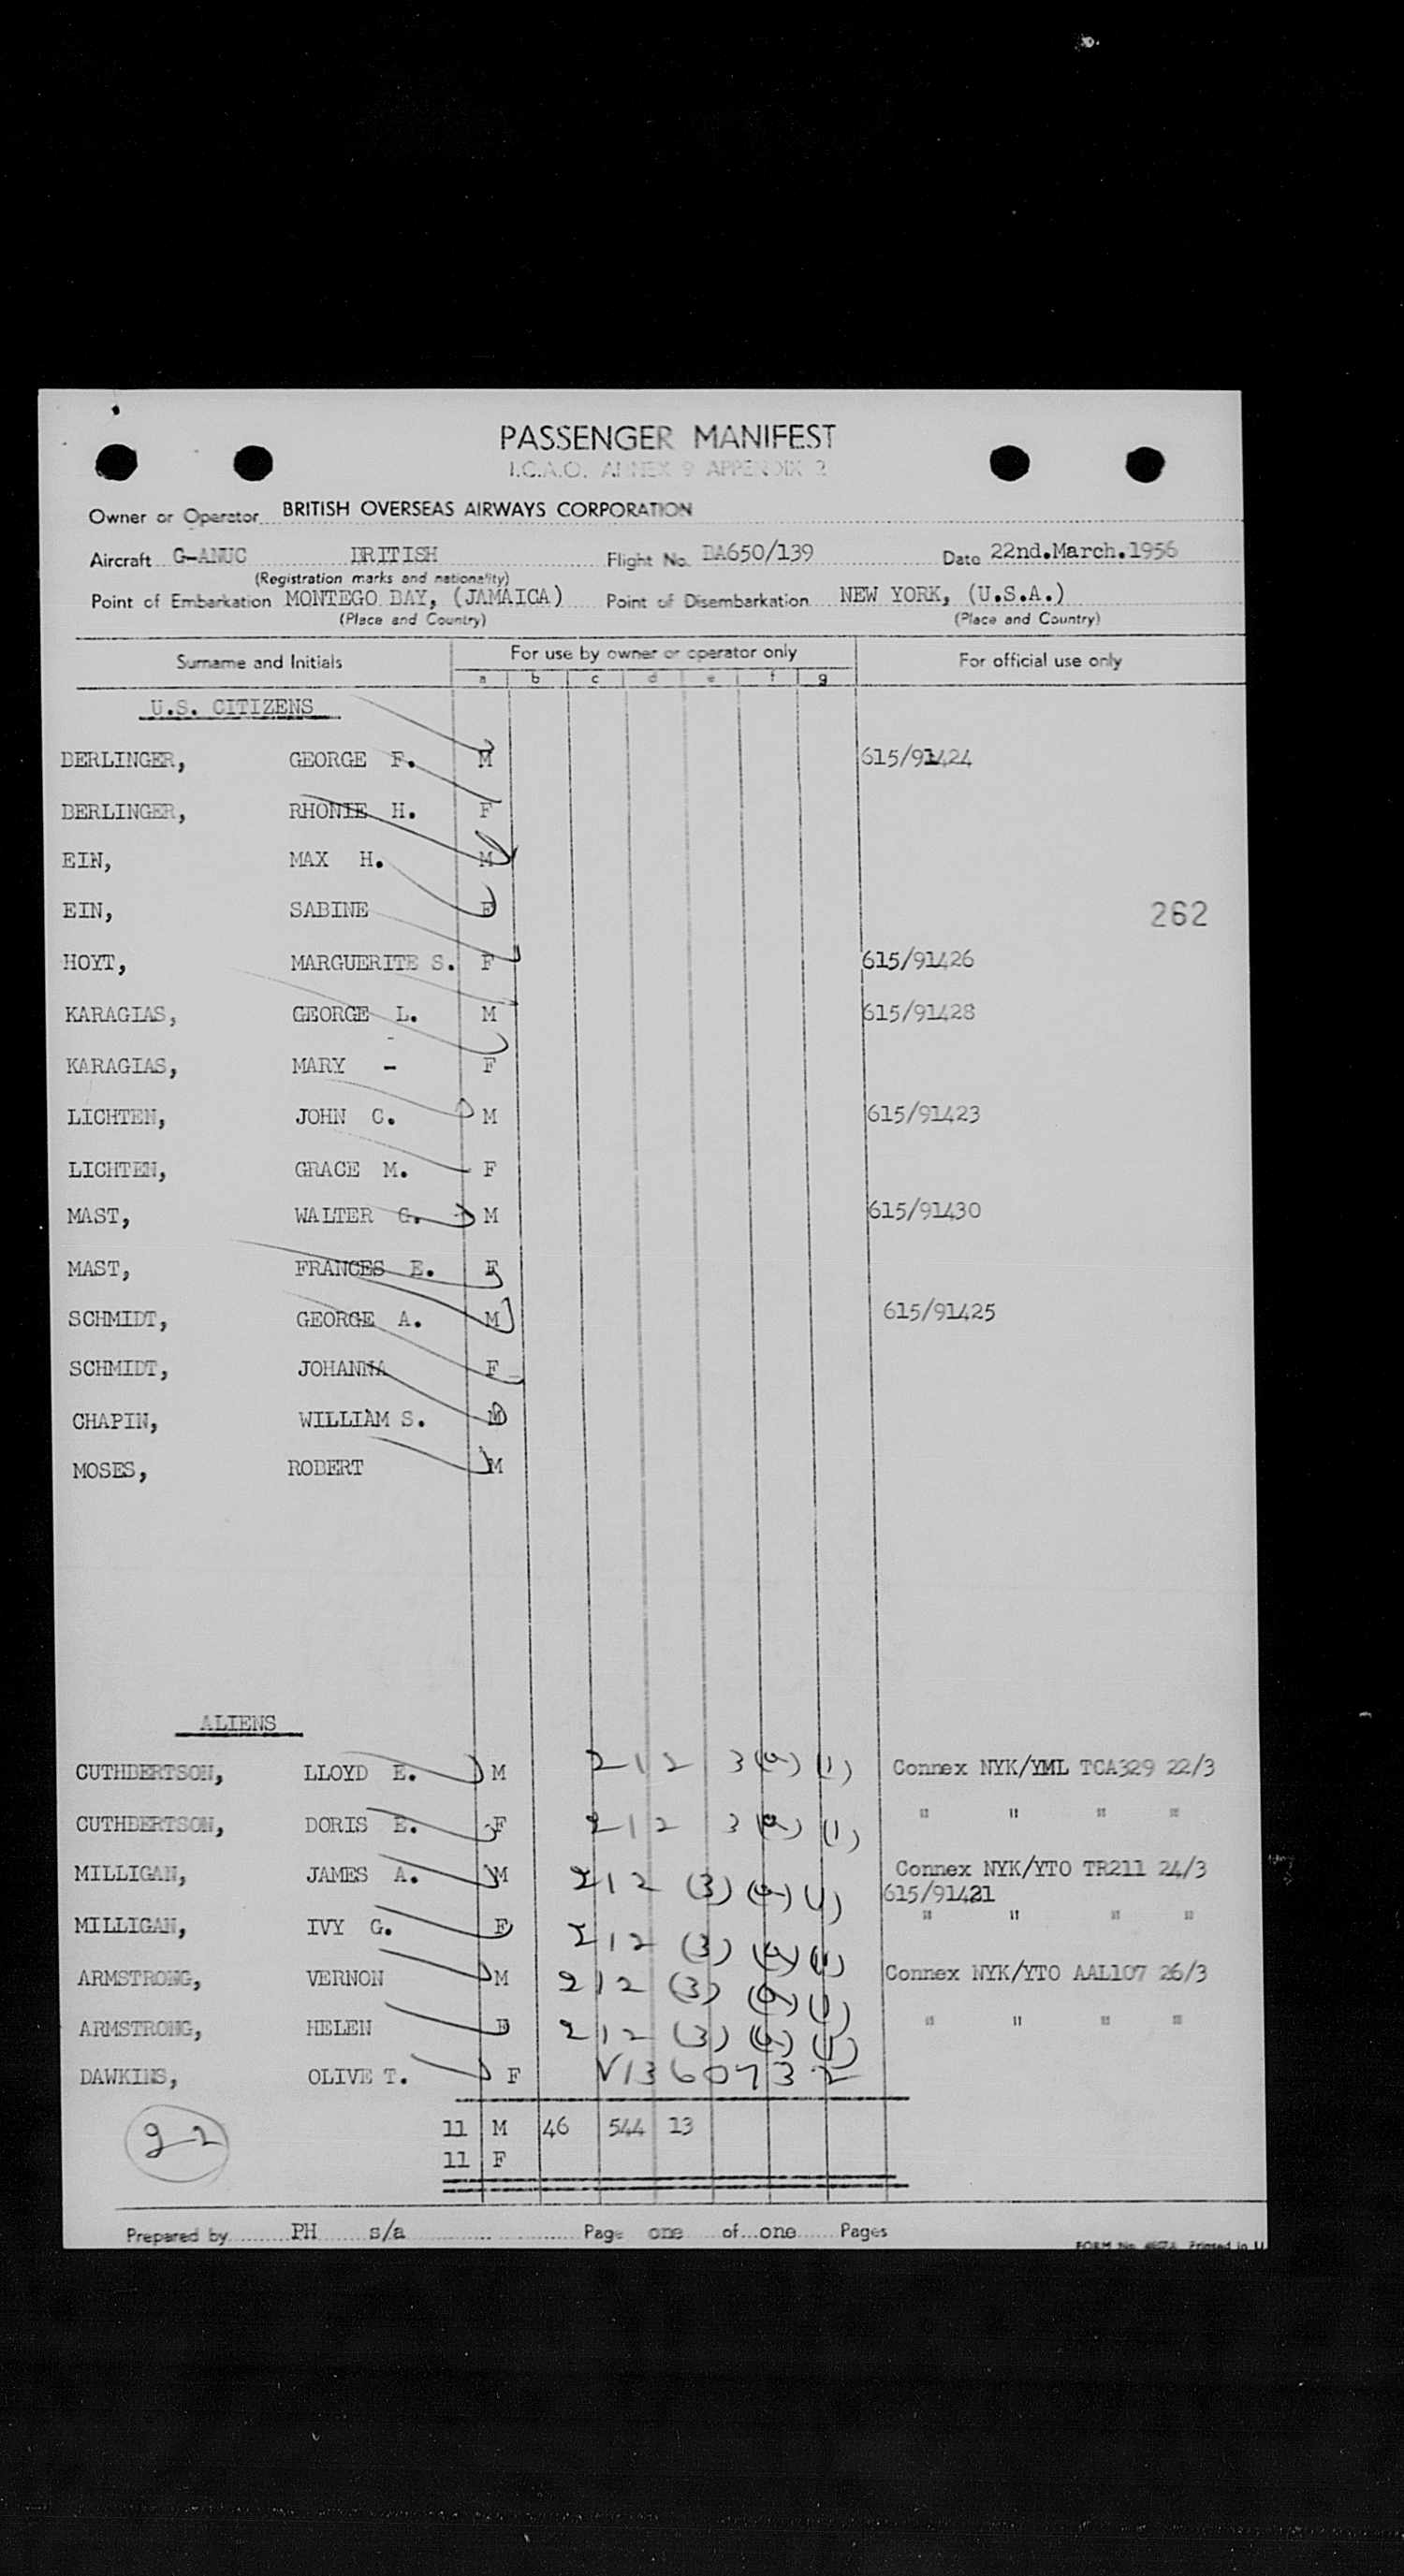 PASSENGER MANIFEST
I.C.A.O. ANNEX 9 APPENDIX 2
Owner or Operator BRITISH OVERSEAS AIRWAYS CORPORATION
Aircraft G-ANUC BRITISH Flight No. BA650/139 Date 22nd.March.1956
(Registration marks and nationality)
Point of Embarkation MONTEGO BAY, (JAMAICA) Point of Disembarkation NEW YORK, (U.S.A.)
(Place and Country) (Place and Country)
Surname and Initials For use by owner or operator only For official use only
a b c d e f g
U.S. CITIZENS
BERLINGER, GEORGE F. M 615/91424
BERLINGER, RHONIE H. F
EIN, MAX H. M
EIN, SABINE F
262
HOYT, MARGUERITE S. F 615/91426
KARAGIAS, GEORGE L. M 615/91428
KARAGIAS, MARY - F
LICHTEN, JOHN C. M 615/91423
LICHTEN, GRACE M. F
MAST, WALTER G. M 615/91430
MAST, FRANCES E. F
SCHMIDT, GEORGE A. M 615/91425
SCHMIDT, JOHANNA F
CHAPIN, WILLIAM S. M
MOSES, ROBERT M
ALIENS
CUTHBERTSON, LLOYD E. M 212 3(a)(1) Connex NYK/YML TCA329 22/3
CUTHBERTSON, DORIS E. F 212 3(a)(1) " " " "
MILLIGAN, JAMES A. M 212 (3)(a)(1) Connex NYK/YTO TR211 24/3
615/91421
MILLIGAN, IVY G. F 212 (3)(a)(1) " " " "
ARMSTRONG, VERNON M 212 (3)(a)(1) Connex NYK/YTO AAL107 26/3
ARMSTRONG, HELEN F 212 (3)(a)(1) " " " "
DAWKINS, OLIVE T. F V1360732
22 11 M 46 544 13
11 F
Prepared by PH s/a Page one of one Pages